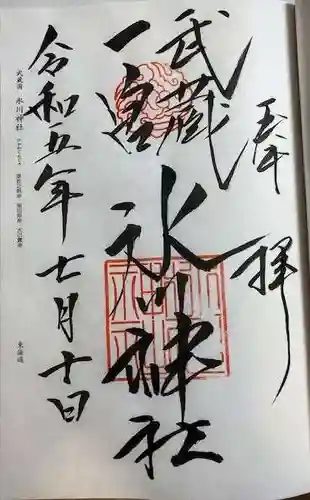 奉拝
武蔵
一宮
氷川神社
令和五年七月十日
武蔵国 氷川神社
東海道